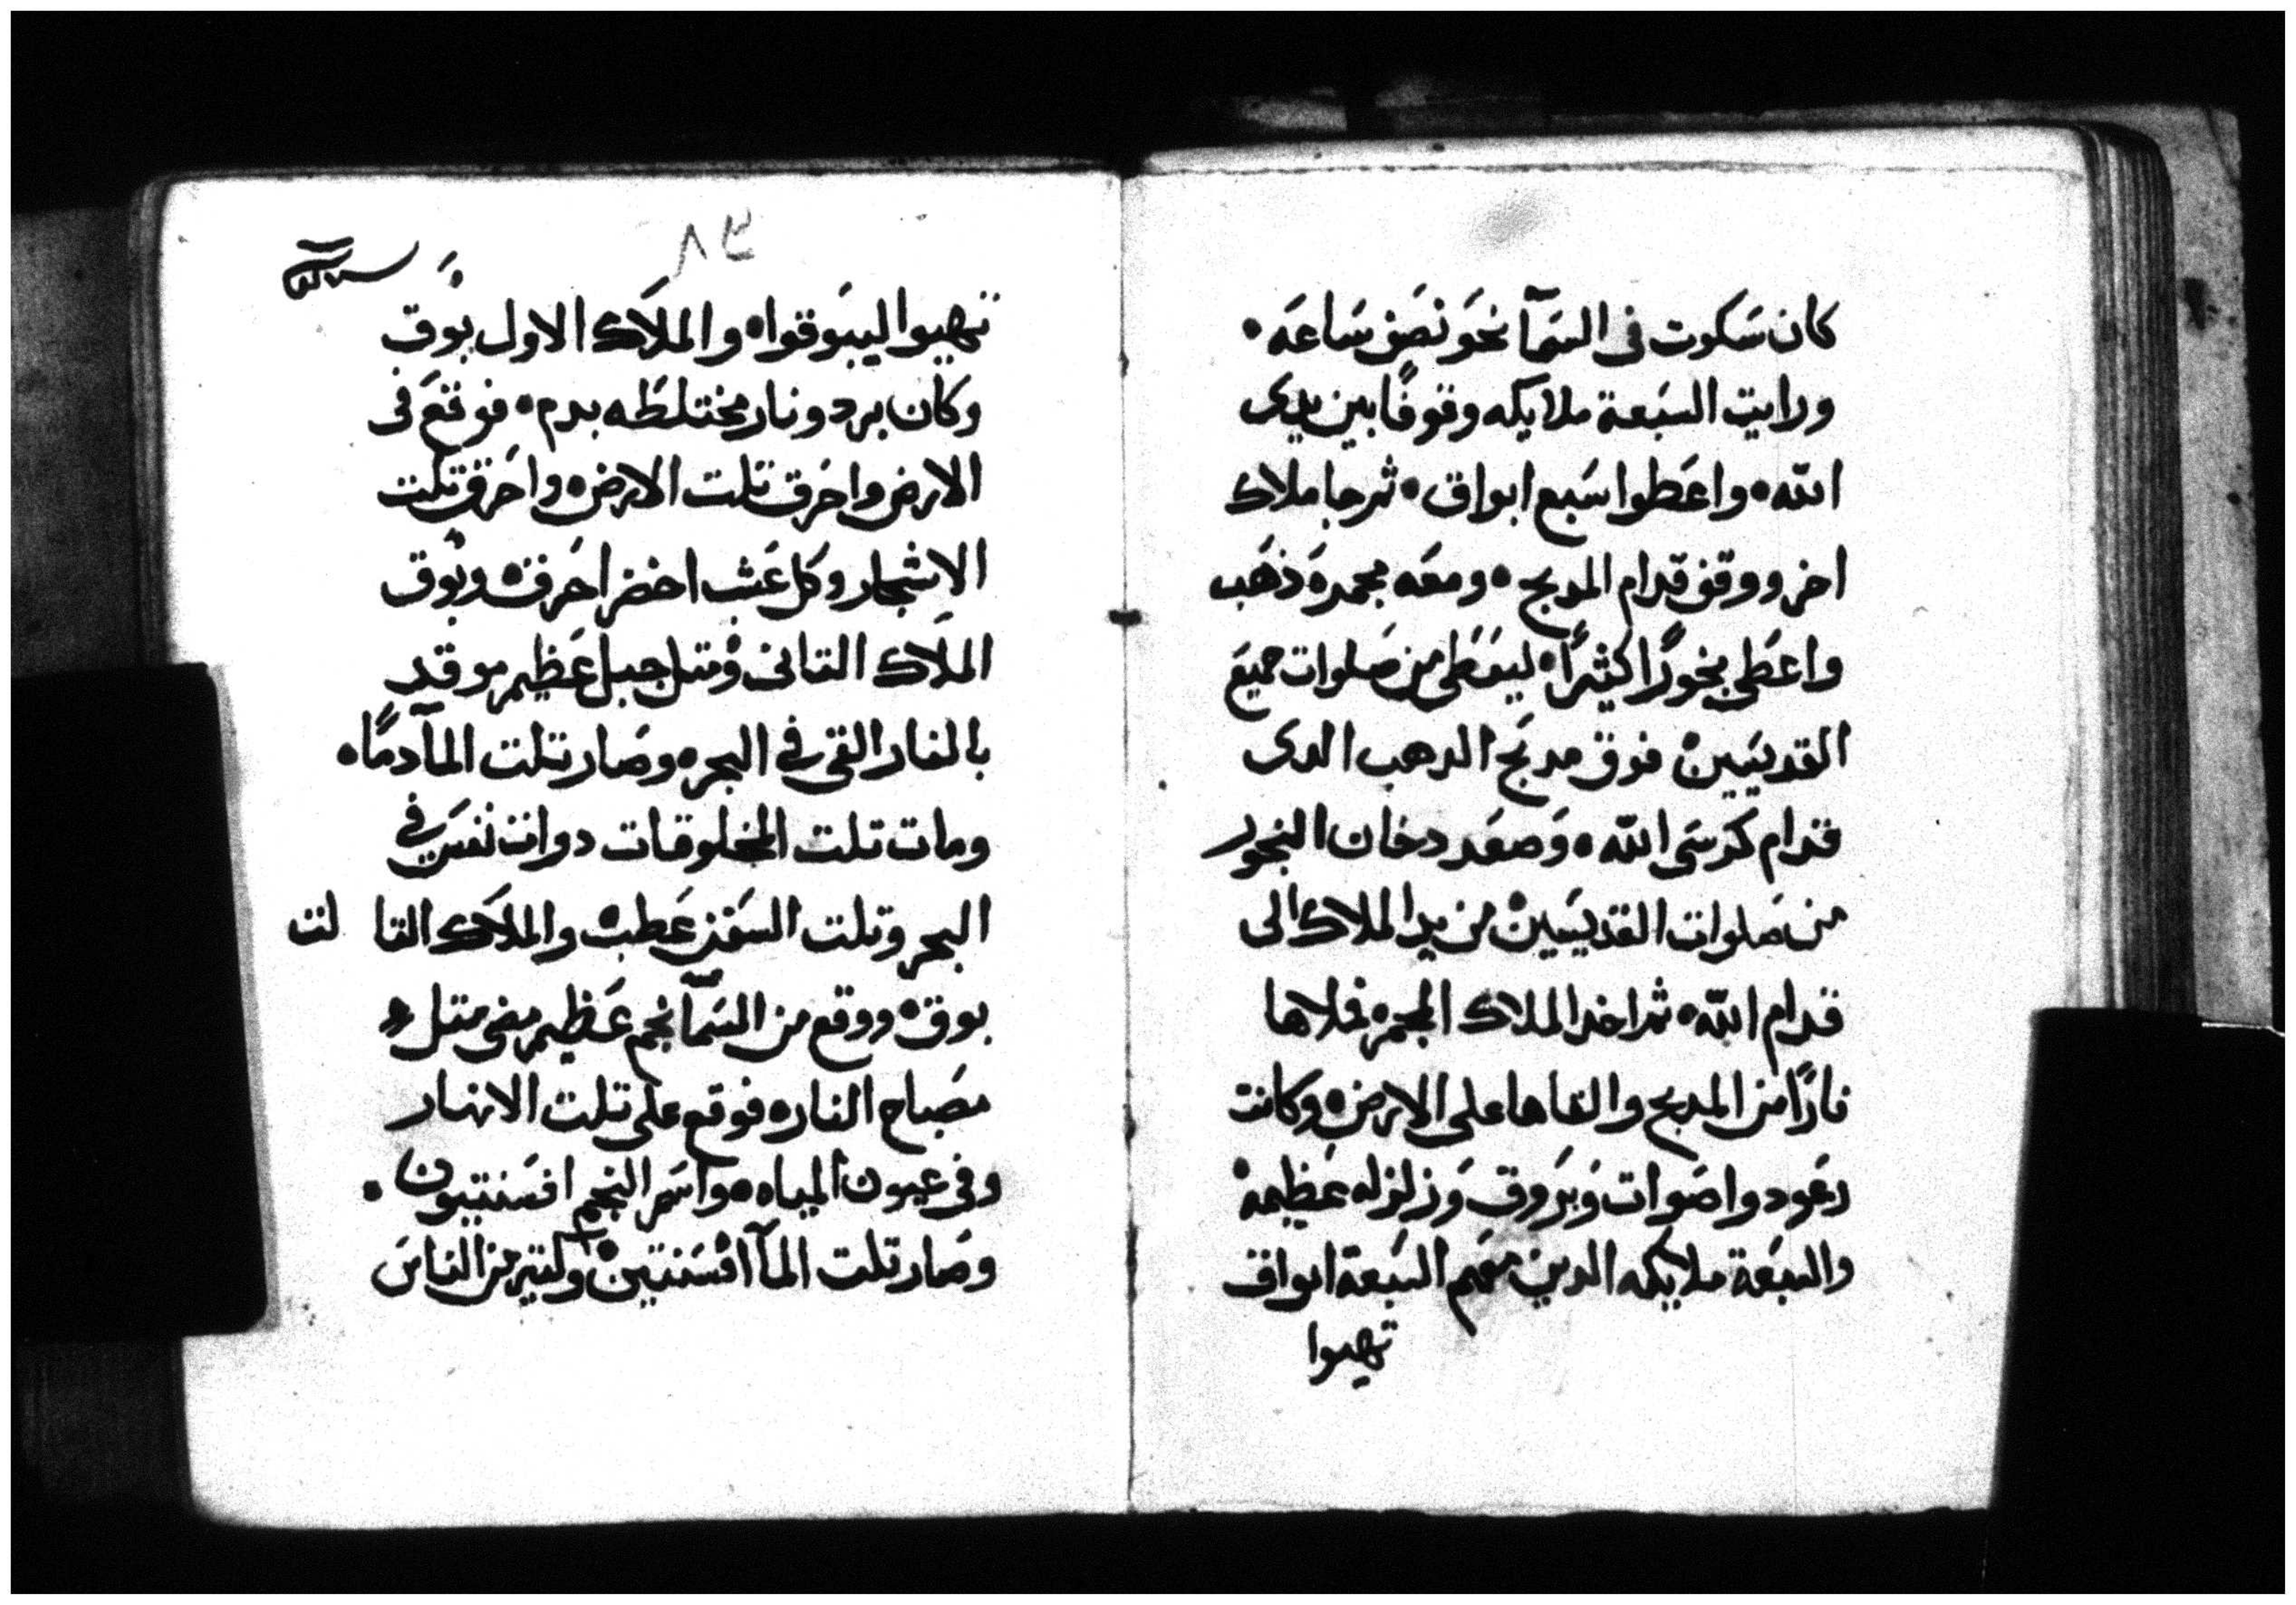 كان سَكوت فى السَمآ نحَو نصَف سَاعَه •
ورايت السَبعة ملايكه وقوفًا بين يدى
اللّه • واعَطوا سَبع ابواق • ثم جا ملاك
اخر ووقف قدام المدبح • ومعَه مجمرة ذهَب
واعطى بخورًا كثيرًا • ليعَطى من صَلوات جميع
القديسَيين • فوق مدبَح الدهب الدى
قدام كرسَى اللّه • وَصعَد دخان البخور
من صَلوات القديسَيين • من يد الملاك الى
قدام اللّه • ثم اخد الملاك المجمره فملاها
نارًا من المدبح والقاها على الارض • وكانت
رعَود واصَوات وَبرَوق وَزلزله عَظيمه •
والسَبعَة ملايكه الدين معَهم السَبعَة ابواق
تهيوا
٨٣
تهيوا ليبَوقوا • والملاَك الاول بوَق
وكان برد ونار مختلطَه بدم • فوقعَ فى
الارض واحَرق تلت الارض • واحَرق تلت
الاشجار وكل عَشب اخضر احَرق • وبَوق
الملاَك التانى • ومتل جبل عَظيم موقد
بالنار القى فى البحر • وصَار تلت المآ دمًا •
ومات تلت المخلوقات دوات نفسَ فى
البحر وتلت السَفن عَطب • والملاَك التا لت
بوق • ووقع من السَمآ نجم عَظيم مضى متل
مصَباح النار • فوقع على تلت الانهار
وفى عيون المياه • واسَم النجم افسَنتيون •
وصَار تلت المآ افسَنتين • وكتير من الناسَ